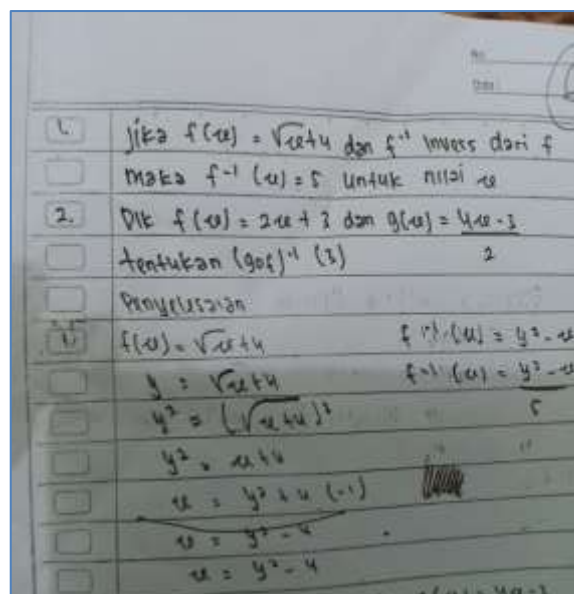 No.
Date:
1. Jika f(x) = √x+4 dan f⁻¹ invers dari f
maka f⁻¹ (x) = 5 untuk nilai x
2. Dik f(x) = 2x + 3 dan g(x) = 4x - 3
2
tentukan (gof)⁻¹ (3)
Penyelesaian
1. f(x) = √x+4 f⁻¹ (x) = y² - x
y = √x+4 f⁻¹ (x) = y² - x
5
y² = (√x+4)²
y² = x+4
x = y² + 4 (-1)
x = y² - 4
x = y² - 4